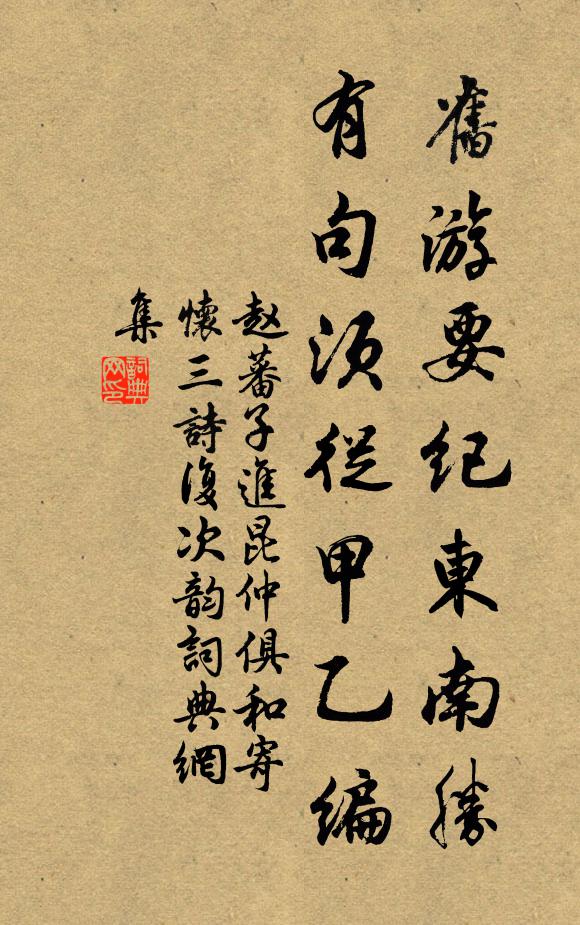 舊游要紀東南勝
有句須從甲乙編
赵蕃子進昆仲俱和寄
懷三詩復次韵詞典網
集
詞典网印